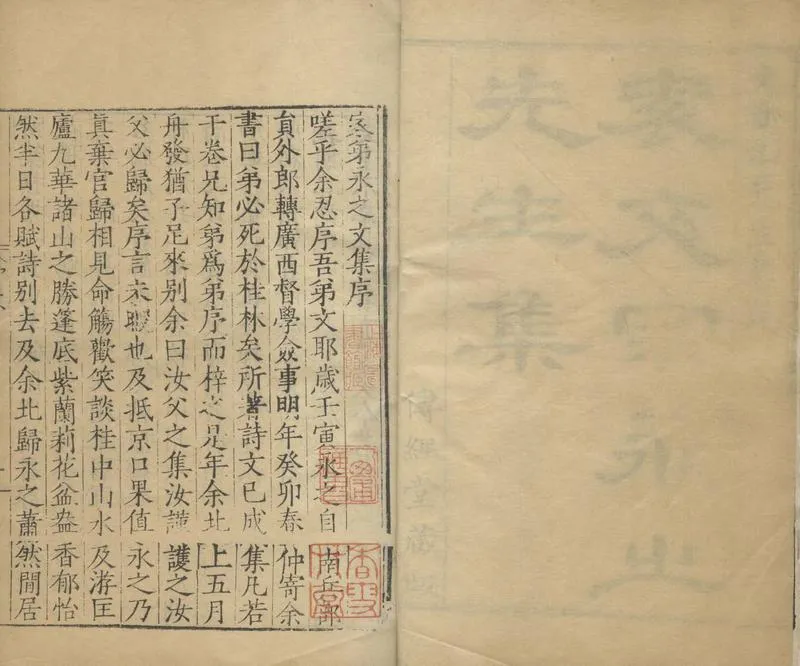 家弟永之文集序
嗟乎余忍序吾弟文耶歲壬寅永之自南兵部
員外郎轉廣西督學僉事明年癸卯春仲寄余
書曰弟必死於桂林矣所著詩文已成集凡若
干卷兄知弟爲弟序而梓之是年余北上五月
舟發猶子尼來別余曰汝父之集汝謹護之汝
父必歸矣序言未暇也及抵京口果值永之乃
眞棄官歸相見命觴歡笑談桂中山水及游匡
廬九華諸山之勝蓬底紫蘭莉花盆盎香郁怡
然半日各賦詩別去及余北歸永之蕭然閒居